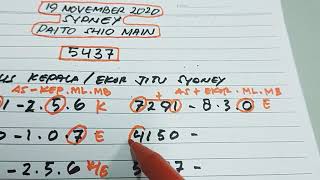 19 NOVEMBER 2020
SYDNEY
PAITO SHIO MAIN
5437
KEPALA / EKOR JITU SYDNEY
AS-KEP.ML.MB ↓ AS+EKOR.ML.MB
1-2.5.6 K 7291-8.3.0 E
-1.0.7 E 4150-
-2.5.6 K/E